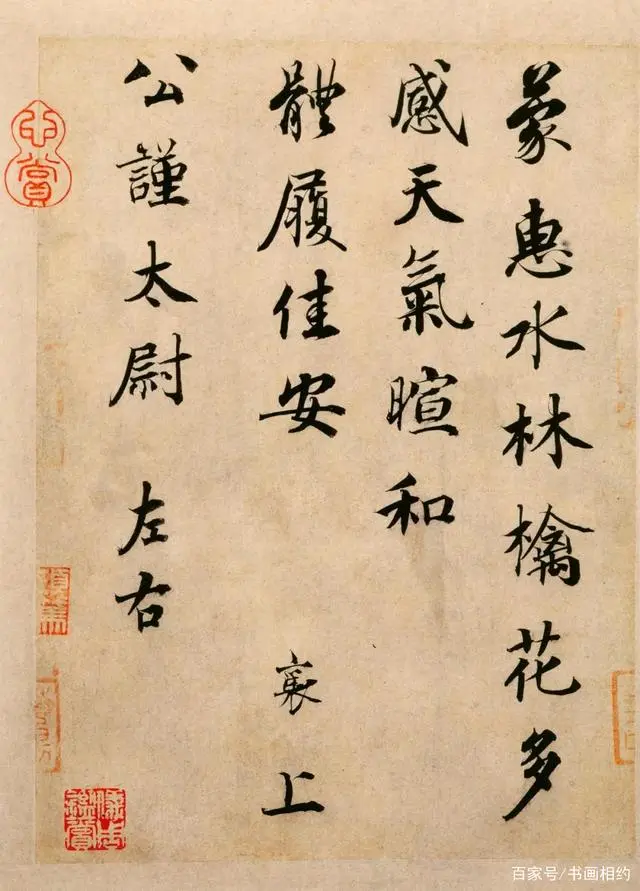 蒙惠水林檎花多
感天氣暄和
體履佳安
襄上
公謹太尉 左右
百家号/书画相约